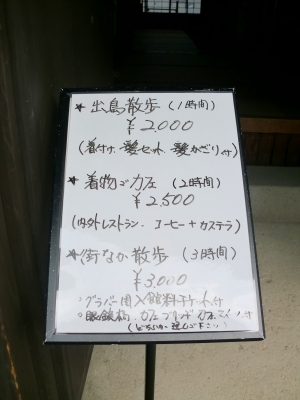 ★出島散歩(1時間)
¥2,000
(着付け.髪セット.髪かざり付)
★着物でカフェ(2時間)
¥2,500
(内外レストラン.コーヒー+カステラ)
★街なか散歩(3時間)
¥3,000
◦グラバー園入館料チケット付
◦眼鏡橋.カフェブリッヂ